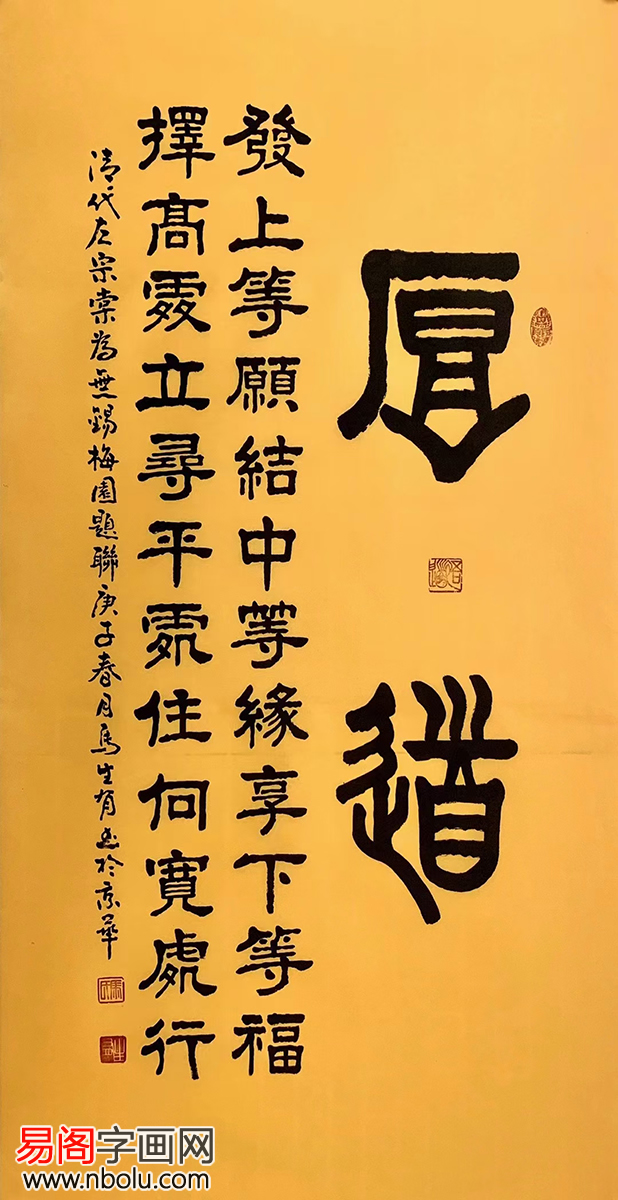 厚道
發上等願結中等緣享下等福
擇高處立尋平處住向寬處行
清代左宗棠為無錫梅園題聯庚子春月馬生有書於京華
易阁字画网
www.nbolu.com